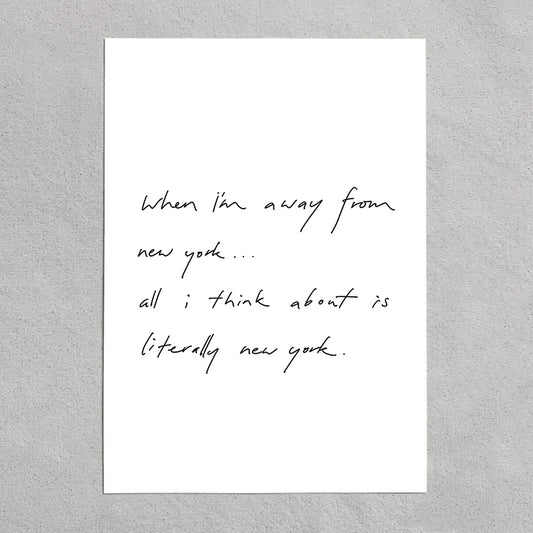 when i'm away from
new york...
all i think about is
literally new york.